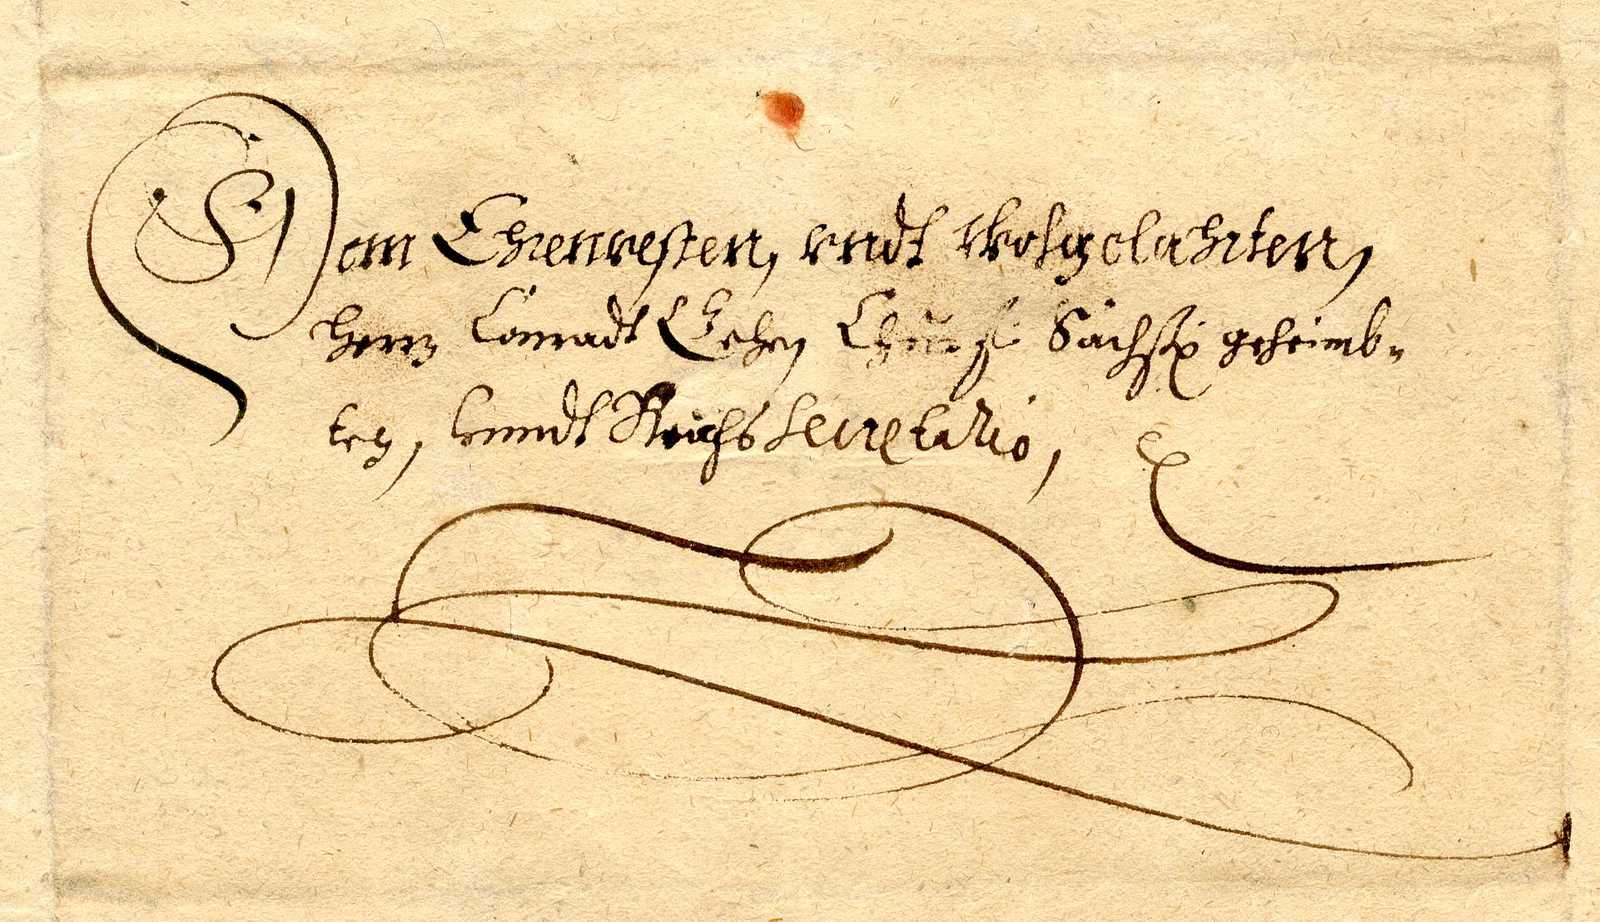 Dem Ehrenvesten, vndt Wolgelahrten,
Herrn Conradt Zehen Churf Sächsi geheimb-
ten, vnndt Reichs Secretario,